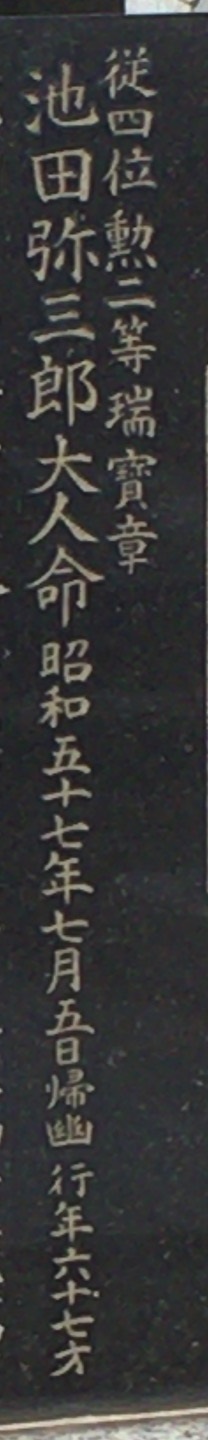 従四位勲二等瑞寳章
池田弥三郎大人命昭和五十七年七月五日帰幽 行年六十七才